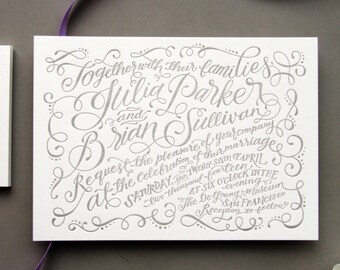 Together with their families
Julia Parker
and
Brian Sullivan
Request the pleasure of your company
at the celebration of their marriage
SATURDAY, APRIL
two thousand fourteen
AT SIX O'CLOCK IN THE
evening
The De Young Museum
SAN FRANCISCO
Reception to follow